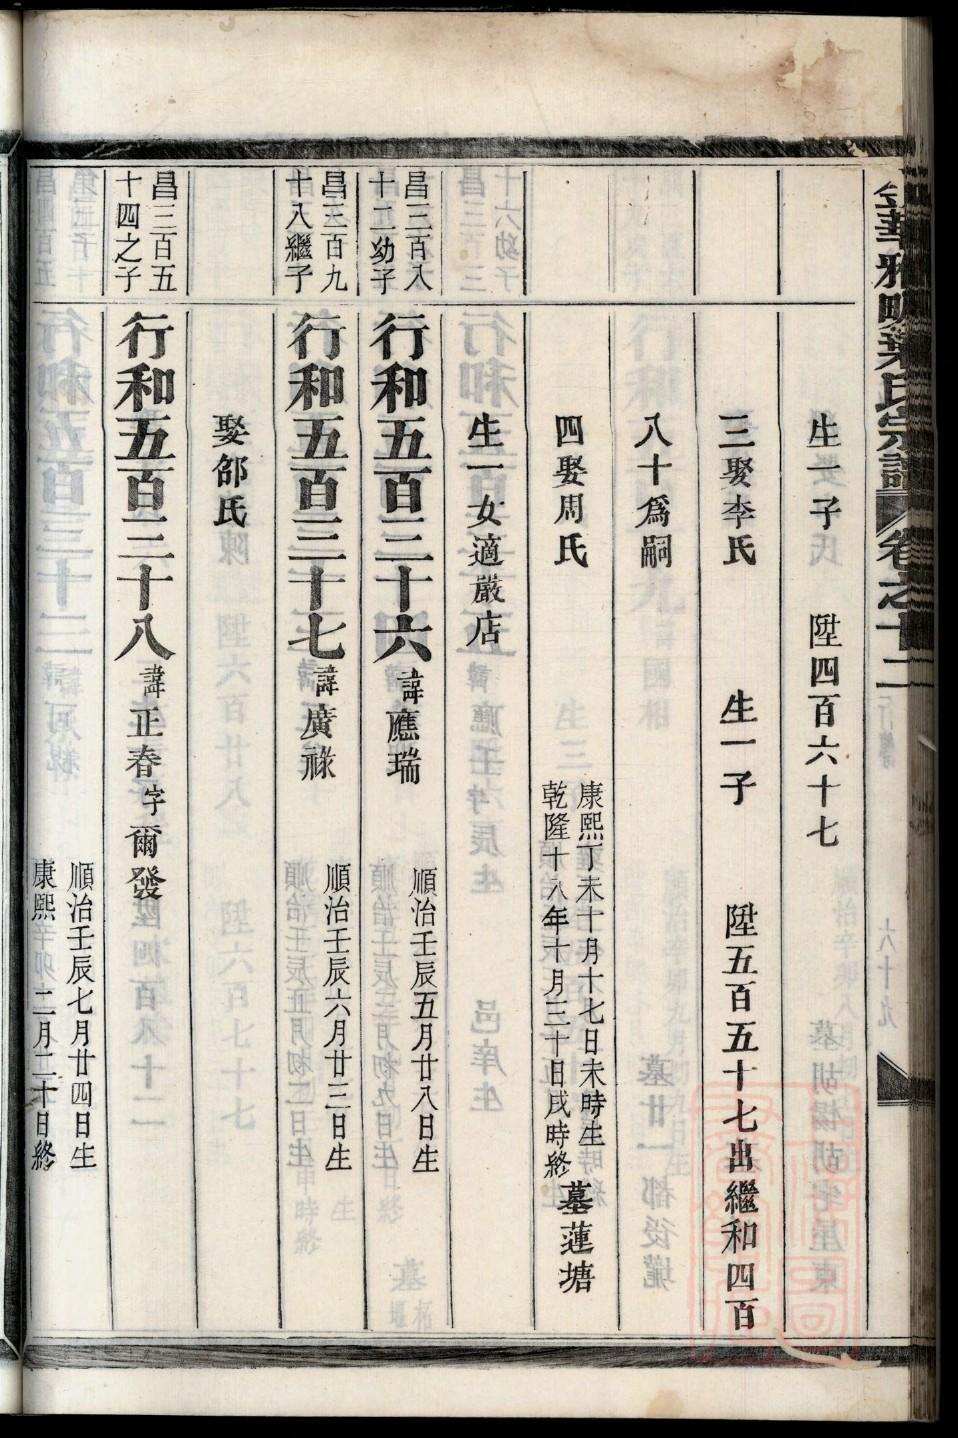 生一子　陞四百六十七
三娶李氏　生一子　陞五百五十七出繼和四百
八十爲嗣
四娶周氏
康熙丁未十月十七日未時生
乾隆十八年十月三十日戌時終
墓蓮塘
生一女適嚴店
昌三百八
十二幼子
行和五百三十六諱應瑞
順治壬辰五月廿八日生
昌三百九
十八繼子
行和五百三十七諱廣祿
順治壬辰六月廿三日生
娶郃氏
昌三百五
十四之子
行和五百三十八諱正春字爾發
順治壬辰七月廿四日生
康熙辛卯二月二十日終
葉氏宗譜
卷之十二